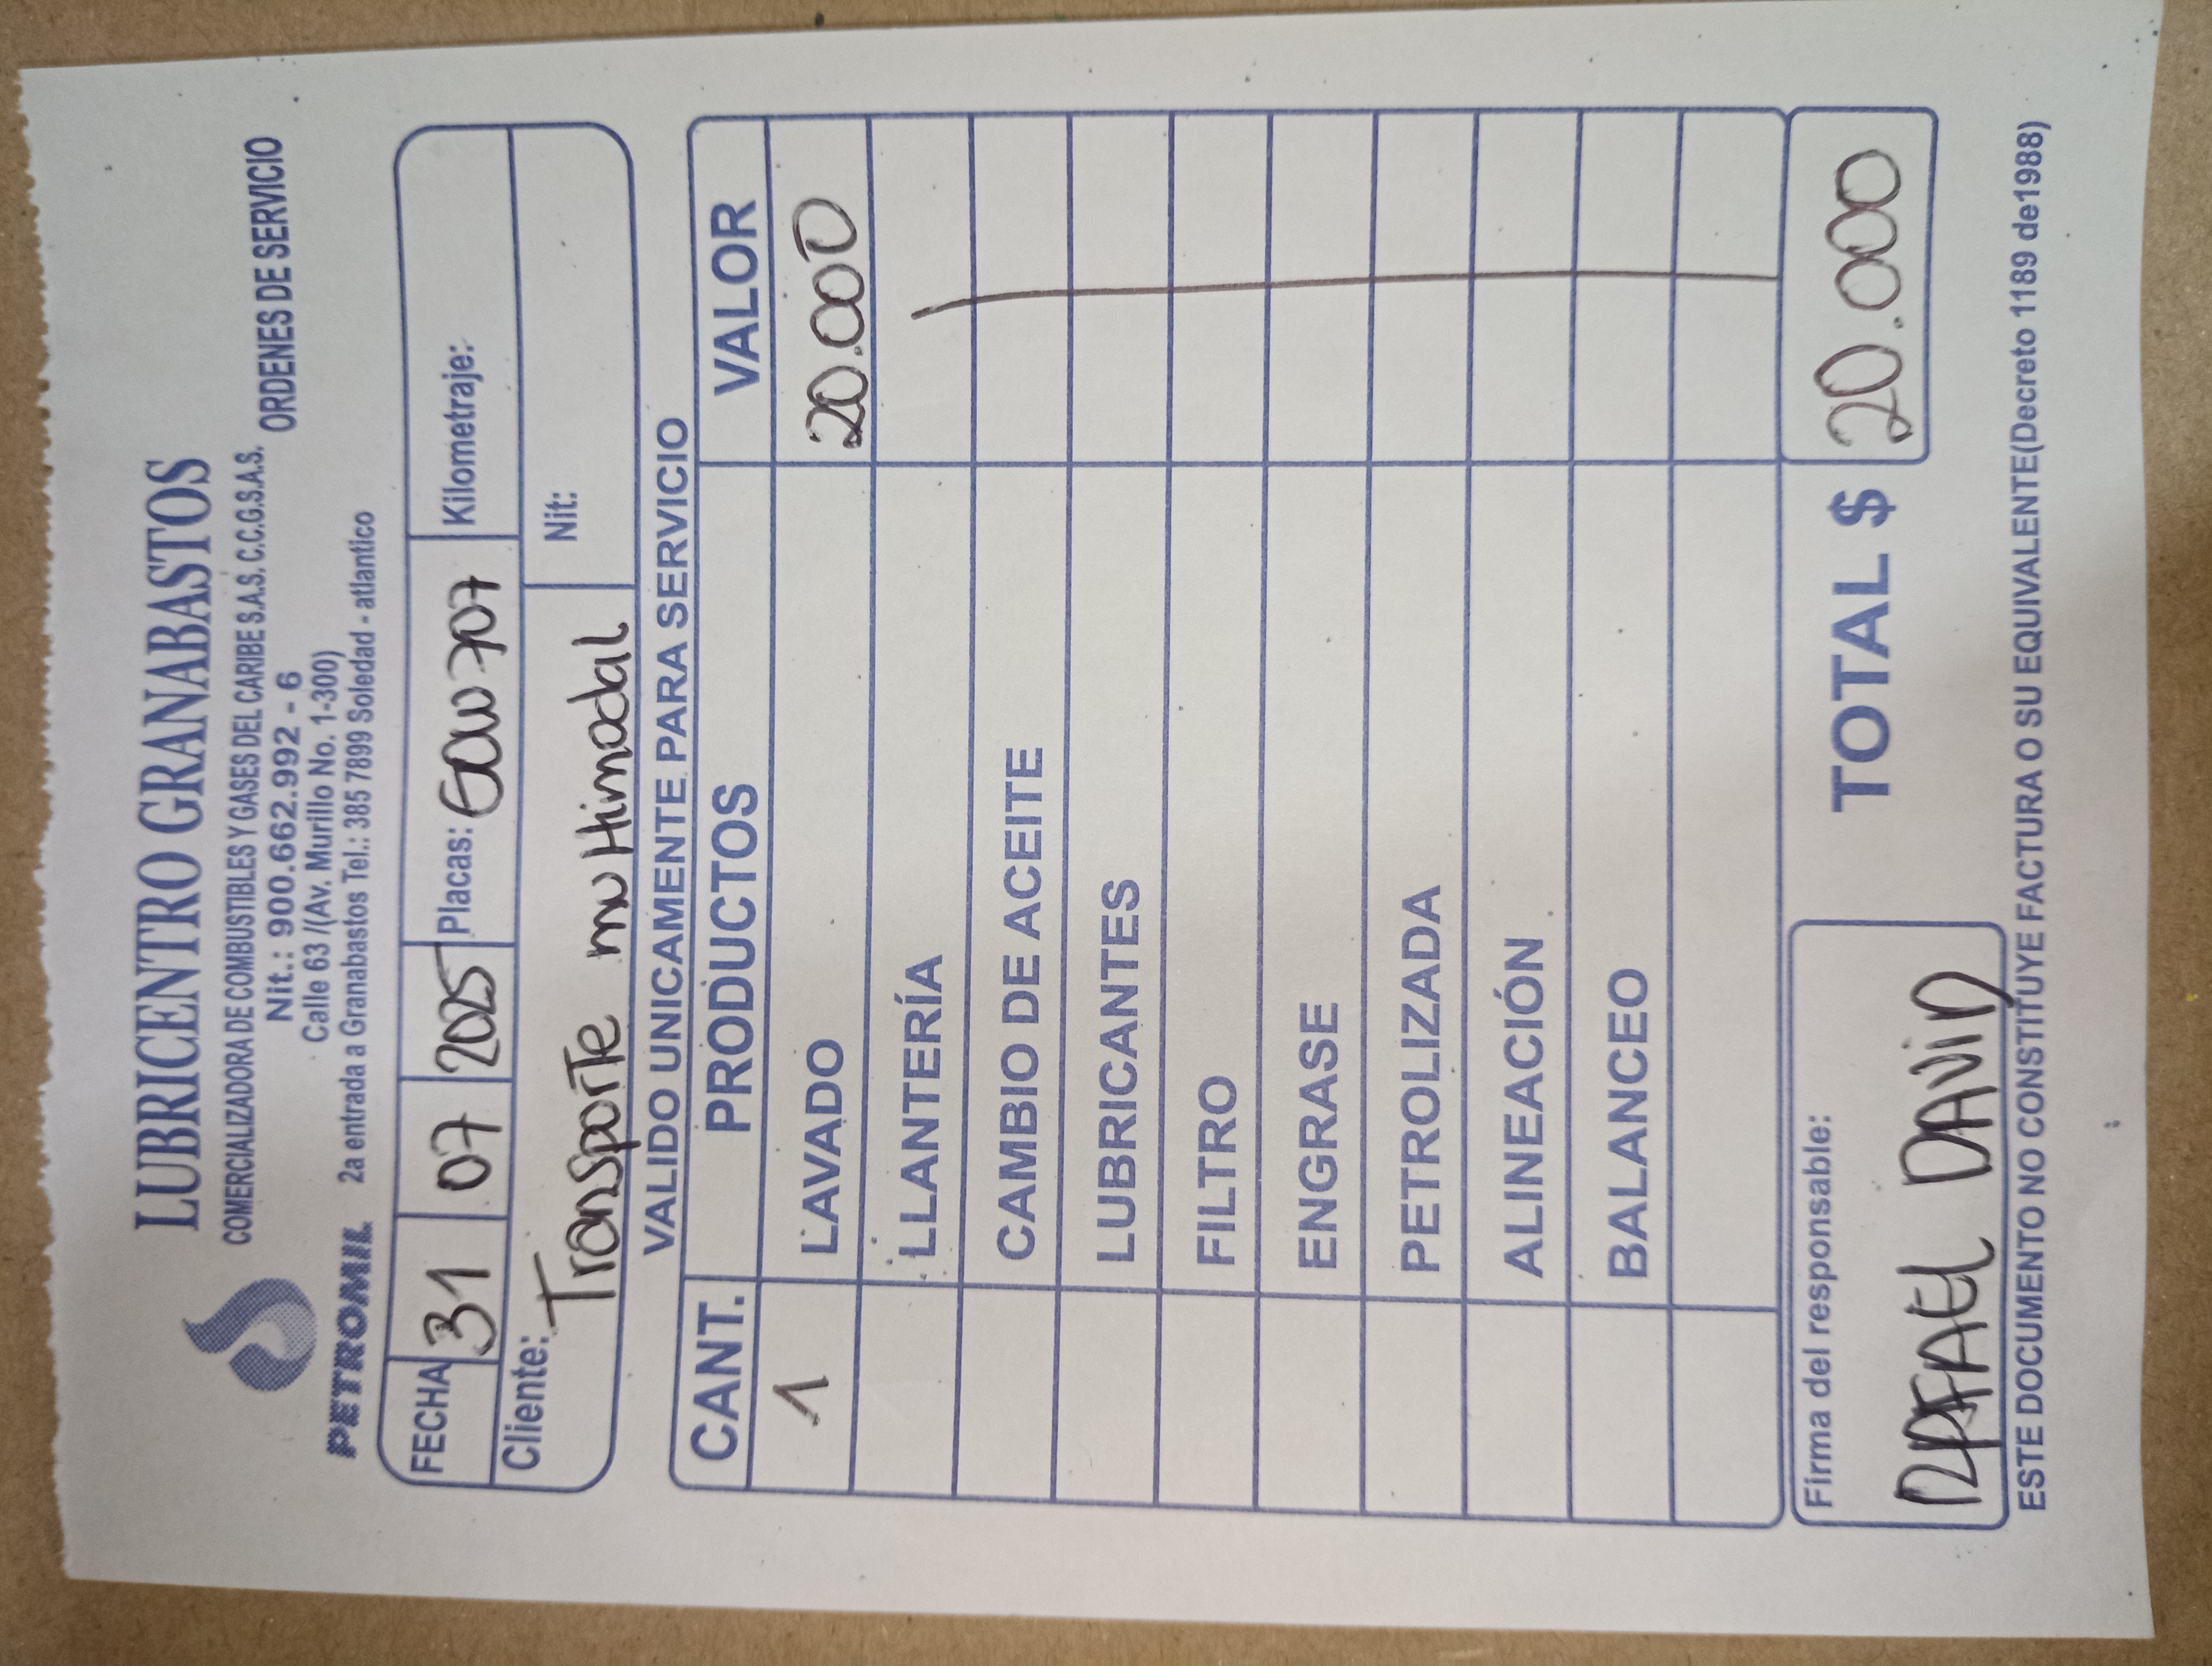 LUBRICENTRO GRANABASTOS
COMERCIALIZADORA DE COMBUSTIBLES Y GASES DEL CARIBE S.A.S. C.C.G.S.A.S.
Nit.: 900.662.992 - 6
ORDENES DE SERVICIO
Calle 63 /(Av. Murillo No. 1-300)
PETROMIL 2a entrada a Granabastos Tel.: 385 7899 Soledad - atlantico
FECHA 31 07 2025 Placas: 707 Kilometraje:
Cliente: Transporte multimodal Nit:
VALIDO UNICAMENTE PARA SERVICIO
CANT. PRODUCTOS VALOR
1 LAVADO 20.000
LLANTERÍA
CAMBIO DE ACEITE
LUBRICANTES
FILTRO
ENGRASE
PETROLIZADA
ALINEACIÓN
BALANCEO
Firma del responsable: TOTAL $ 20.000
RAFAEL DAVID
ESTE DOCUMENTO NO CONSTITUYE FACTURA O SU EQUIVALENTE(Decreto 1189 de1988)